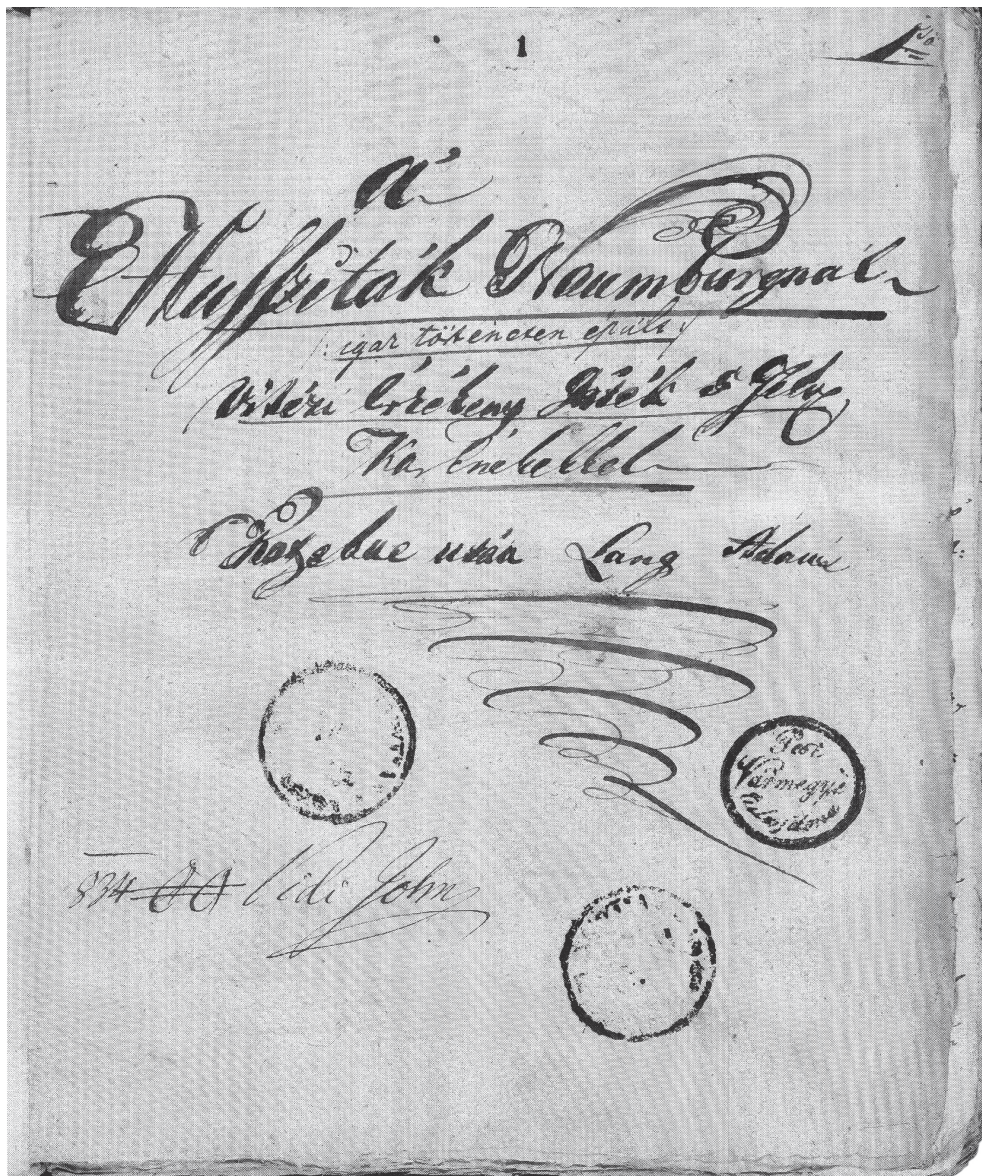 1
a'
Husziták Naumburgnál
/: igaz történeten épült :/
Vitézi Érzékeny Játék 5 Felv.
Kar Énekekkel
Kotzebue után Lang Ádám
Pest
Vármegye
Tulajdona
834 Vidi John